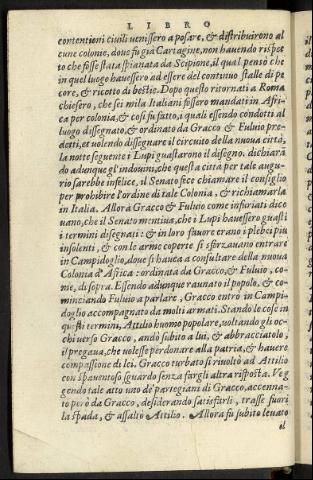 LIBRO
contentioni ciuili uenissero a posare, & distribuirono al
cune colonie, doue fu già Cartagine, non hauendo rispet
to che fosse stata spianata da Scipione, il qual pensò che
in quel luogo hauessero ad essere del continuo stalle di pe
core, & ricotto di bestie. Dopo questo ritornati a Roma
chiesero, che sei mila Italiani fossero mandati in Afri-
ca per colonia, & cosi fu fatto, a quali essendo condotti al
luogo dissegnato, & ordinato da Gracco & Fuluio pre-
detti, et volendo dissegnare il circuito della nuoua città,
la notte seguente i Lupi guastarono il disegno. dichiarā
do adunque gl'indouini, che questa città per tale augu-
rio sarebbe infelice, il Senato fece chiamare il consiglio
per prohibire l'ordine di tale Colonia, & richiamarla
in Italia. Allora Gracco & Fuluio come infuriati dice
uano, che il Senato mentiua, che i Lupi hauessero guasti
i termini disegnati: & in loro fauore erano i plebei piu
insolenti, & con le arme coperte si sforzauano entrare
in Campidoglio, doue si haueа a consultare della nuoua
Colonia d'Africa: ordinata da Gracco, & Fuluio, co-
me, di sopra. Essendo adunque raunato il popolo, & co-
minciando Fuluio a parlare, Gracco entrò in Campi-
doglio accompagnato da molti armati. Stando le cose in
questi termini, Attilio huomo popolare, uoltando gli oc-
chi uerso Gracco, andò subito a lui, & abbracciatolo,
il pregaua, che uolesse perdonare alla patria, & hauere
compassione di lei. Gracco turbato si riuoltò ad Attilio
con spauentoso sguardo senza fargli altra risposta. Veg
gendo tale atto uno de partegiani di Gracco, accenna-
to però da Gracco, desiderando satisfarli, trasse fuori
la spada, & assaltò Attilio. Allora fu subito leuato
il